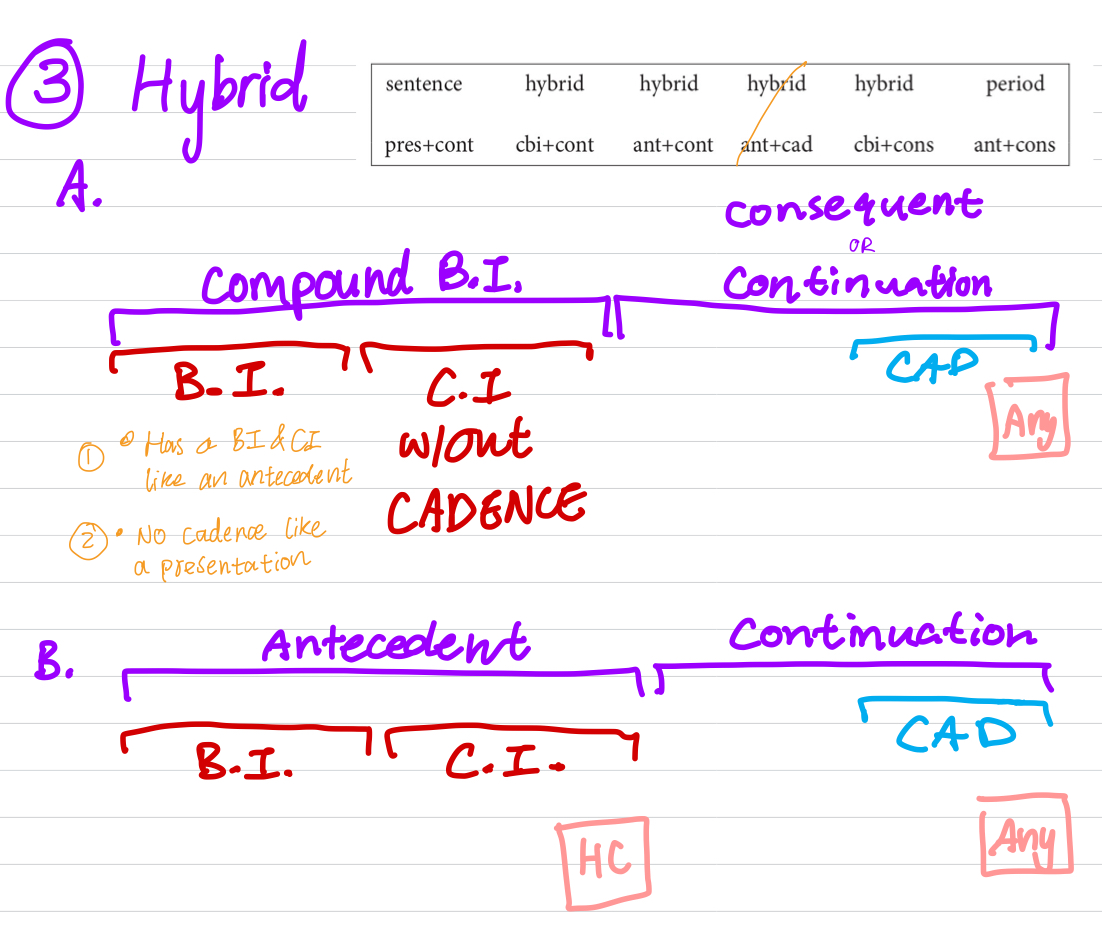 ③ Hybrid
sentence hybrid hybrid hybrid hybrid period
pres+cont cbi+cont ant+cont ant+cad cbi+cons ant+cons
A.
Consequent
OR
Compound B.I. Continuation
B.I. C.I CAD
w/out
CADENCE
Any
① • Has a BI & CI
like an antecedent
② • No cadence like
a presentation
B. Antecedent Continuation
B.I. C.I. CAD
HC Any